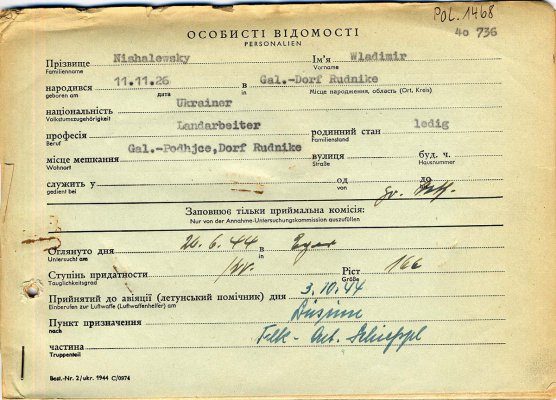 POL. 1468
ОСОБИСТІ ВІДОМОСТІ 40 736
PERSONALIEN
Прізвище Nishalewsky Ім'я Wladimir
Familienname Vorname
народився 11.11.26 в Gal.-Dorf Rudnike
geboren am дата in Місце народження, область (Ort, Kreis)
національність Ukrainer
Volkstumszugehörigkeit
професія Landarbeiter родинний стан ledig
Beruf Familienstand
місце мешкання Gal.-Podhjce,Dorf Rudnike вулиця буд. ч.
Wohnort Straße Hausnummer
служить у од до
gedient bei von bis
Заповнює тільки приймальна комісія:
Nur von der Annahme-Untersuchungskommission auszufüllen
Оглянуто дня 20.6.44 в Eger
Untersucht am in
Ступінь придатности Ріст 166
Tauglichkeitsgrad Größe
Прийнятий до авіяції (летунський помічник) дня 3.10.44
Einberufen zur Luftwaffe (Luftwaffenhelfer) am
Пункт призначення
nach
частина
Truppenteil
Best.-Nr. 2/ukr. 1944 C/0974